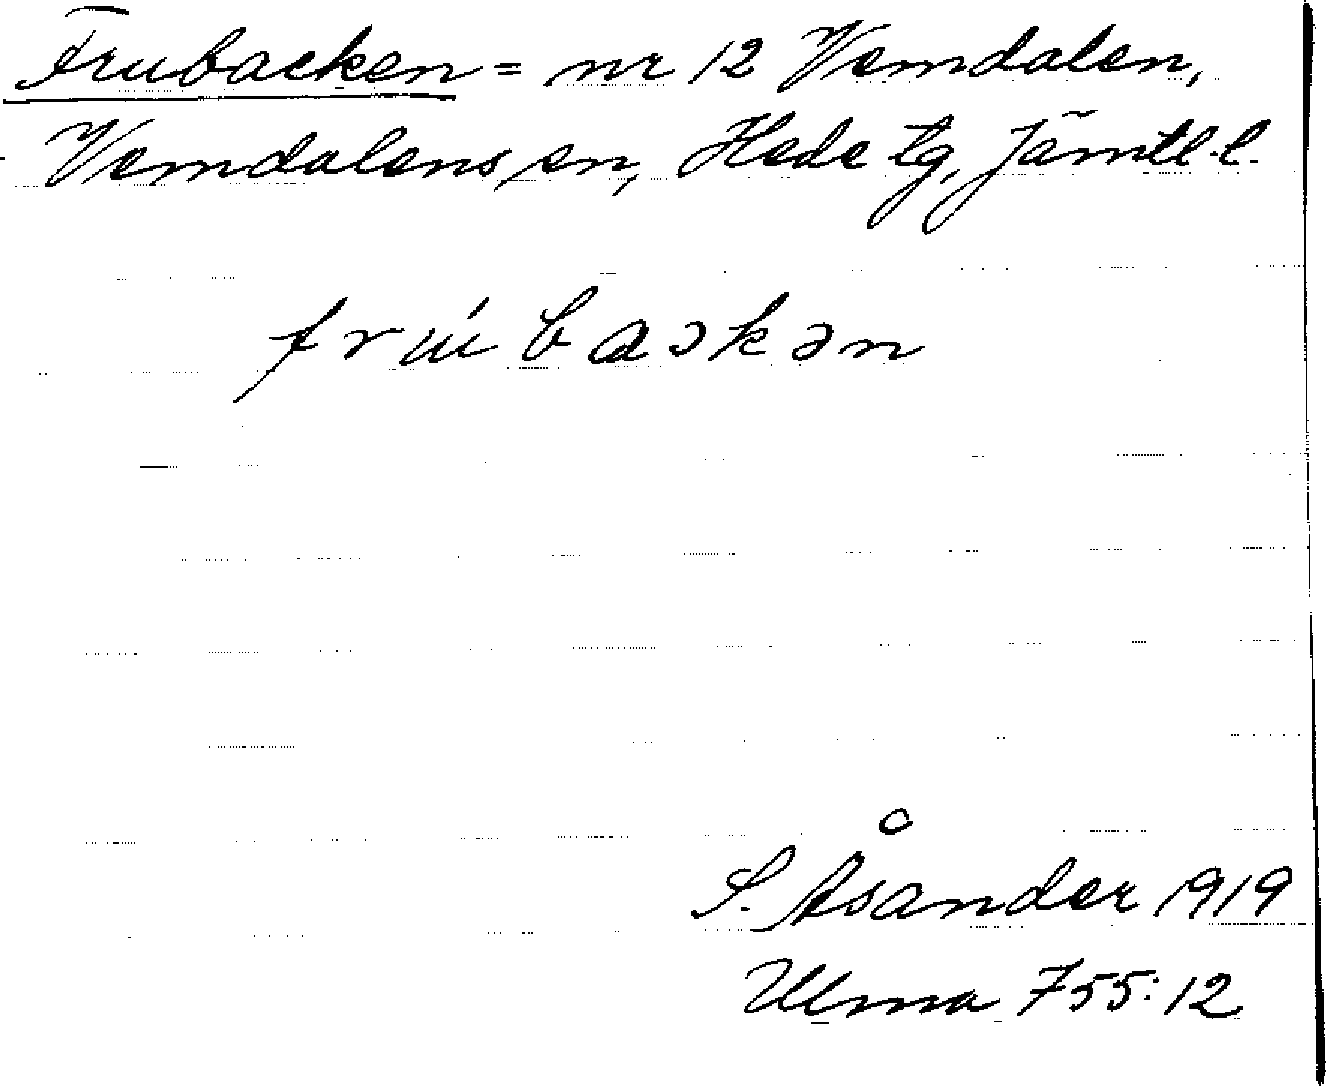 Frubacken = nr 12 Vemdalen,
Vemdalens sn, Hede tg, Jämtl. l.
frúbaɔkən
S. Åsander 1919
Ulma 755:12